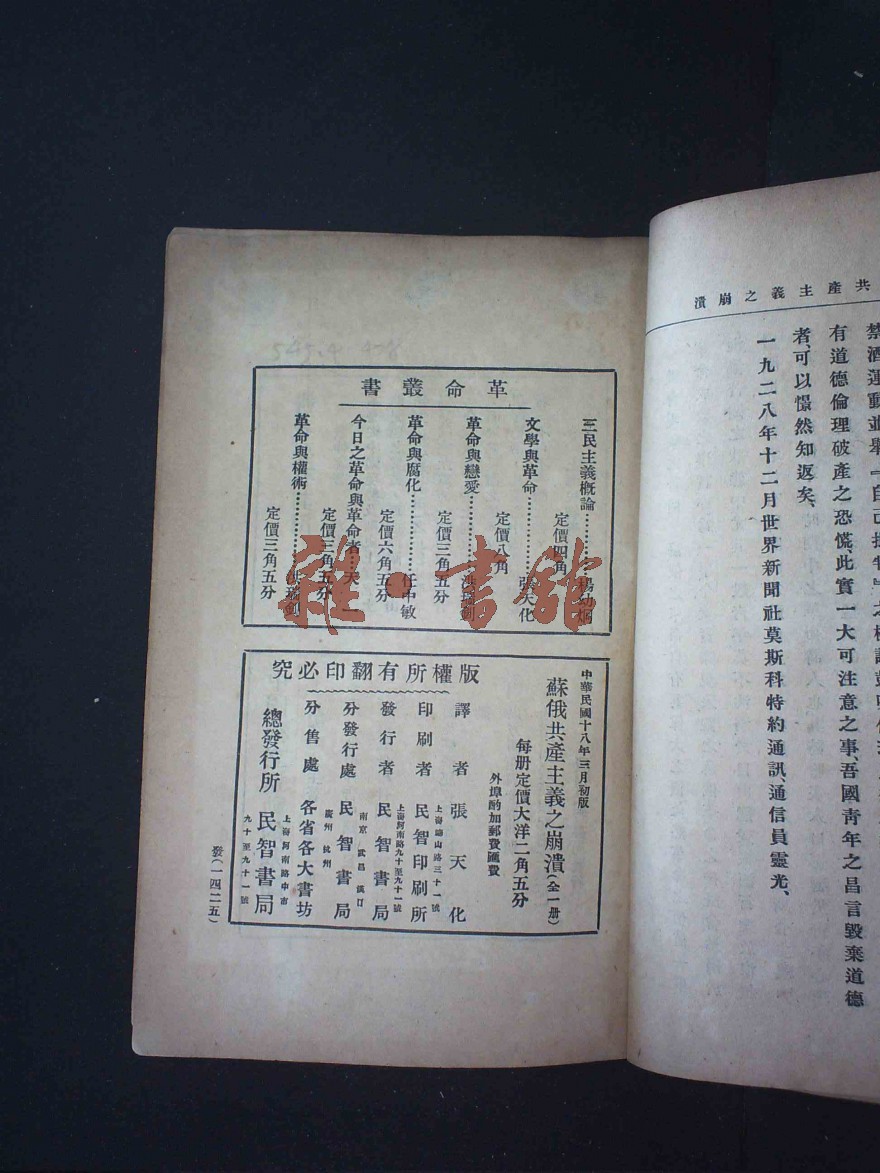 共產主義之崩潰
禁酒運動並舉『自己
有道德倫理破產之恐慌、此實一大可注意之事、吾國靑年之昌言毀棄道德
者、可以憬然知返矣、
一九二八年十二月世界新聞社莫斯科特約通訊、通信員靈光、
545.4 428
革命叢書
三民主義概論…………楊幼炯
定價四角
文學與革命…………張天化
定價八角
革命與戀愛…………洪瑞釗
定價三角五分
革命與腐化…………任中敏
定價六角五分
今日之革命與革命者……天
定價三角五分
革命與權術…………洪瑞釗
定價三角五分
版權所有翻印必究
中華民國十八年三月初版
蘇俄共產主義之崩潰(全一册)
每册定價大洋二角五分
外埠酌加郵費匯費
譯者 張天化
印刷者 民智印刷所
上海 山路三十一號
發行者 民智書局
上海河南路九十至九十一號
分發行處 民智書局
南京 武昌 漢口
廣州 杭州
分售處 各省各大書坊
總發行所 民智書局
上海河南路中市
九十至九十一號
發(一四二五)
雜·書館